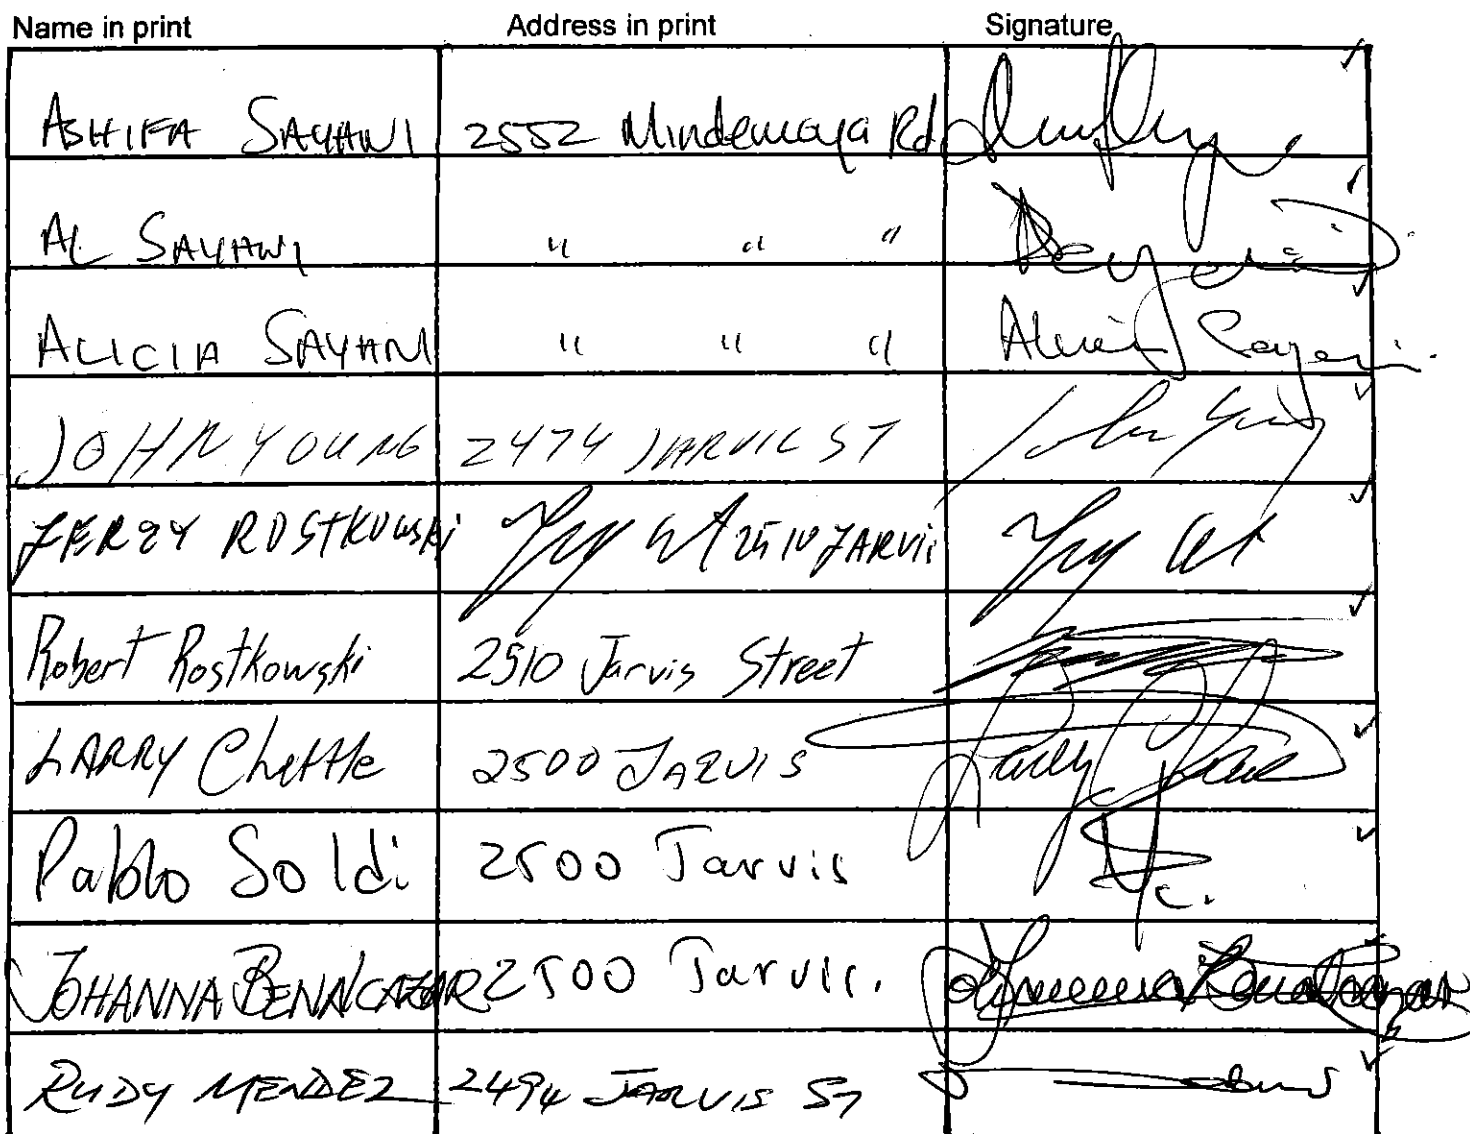 Name in print Address in print Signature
ASHIFA SAYANI 2552 Mindemoya Rd.
AL SAYANI " " "
ALICIA SAYANI " " " Alicia Sayani
JOHN YOUNG 2474 JARVIS ST John Young
JERZY ROSTKOWSKI 2510 JARVIS
Robert Rostkowski 2510 Jarvis Street
LARRY Chettle 2500 JARVIS Larry
Pablo Soldi 2500 Jarvis
JOHANNA BENALCAZAR 2500 Jarvis. Johanna Benalcazar
RUDY MENDEZ 2494 JARVIS ST